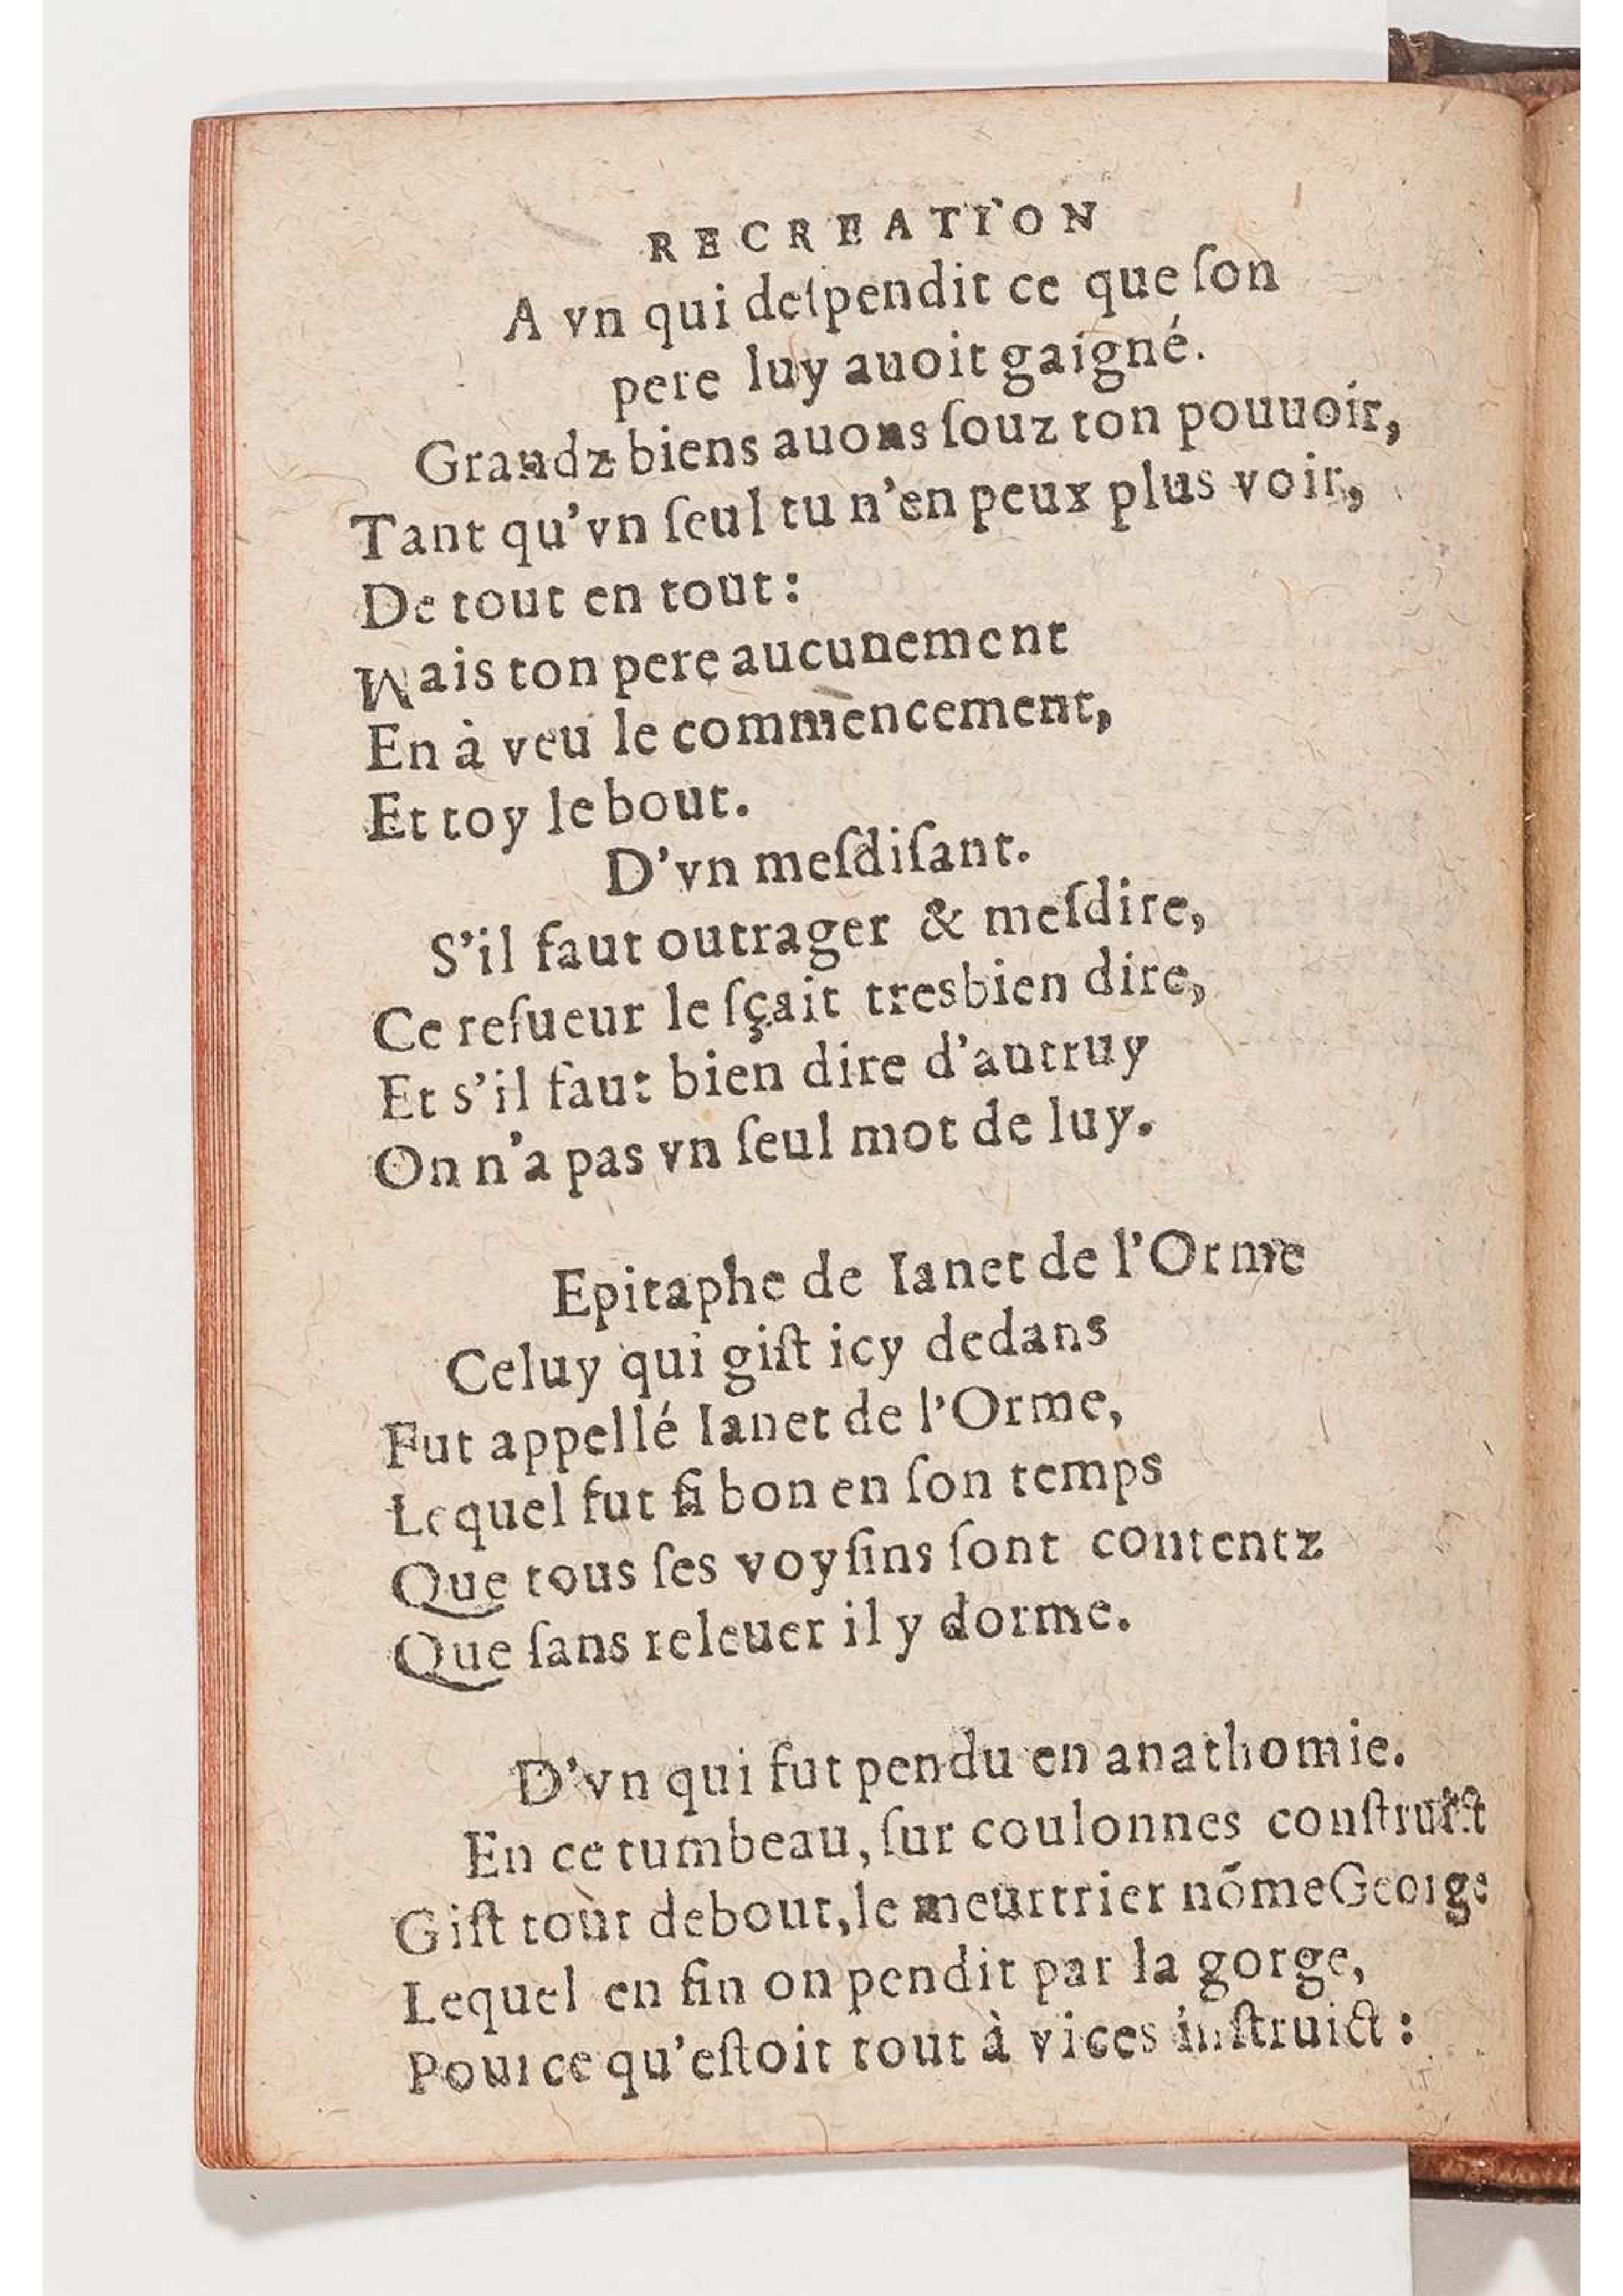 RECREATION
A vn qui deſpendit ce que ſon
pere luy auoit gaigné.
Grandz biens auons ſouz ton pouuoir,
Tant qu'vn ſeul tu n'en peux plus voir,
De tout en tout:
Mais ton pere aucunement
En à veu le commencement,
Et toy le bout.
D'vn meſdiſant.
S'il faut outrager & meſdire,
Ce reſueur le ſçait tresbien dire,
Et s'il faut bien dire d'autruy
On n'a pas vn ſeul mot de luy.
Epitaphe de Ianet de l'Orme
Celuy qui giſt icy dedans
Fut appellé Ianet de l'Orme,
Lequel fut ſi bon en ſon temps
Que tous ſes voyſins ſont contentz
Que ſans releuer il y dorme.
D'vn qui fut pendu en anathomie.
En ce tumbeau, ſur coulonnes conſtruict
Giſt tout debout, le meurtrier nõme George
Lequel en fin on pendit par la gorge,
Pource qu'eſtoit tout à vices inſtruict: